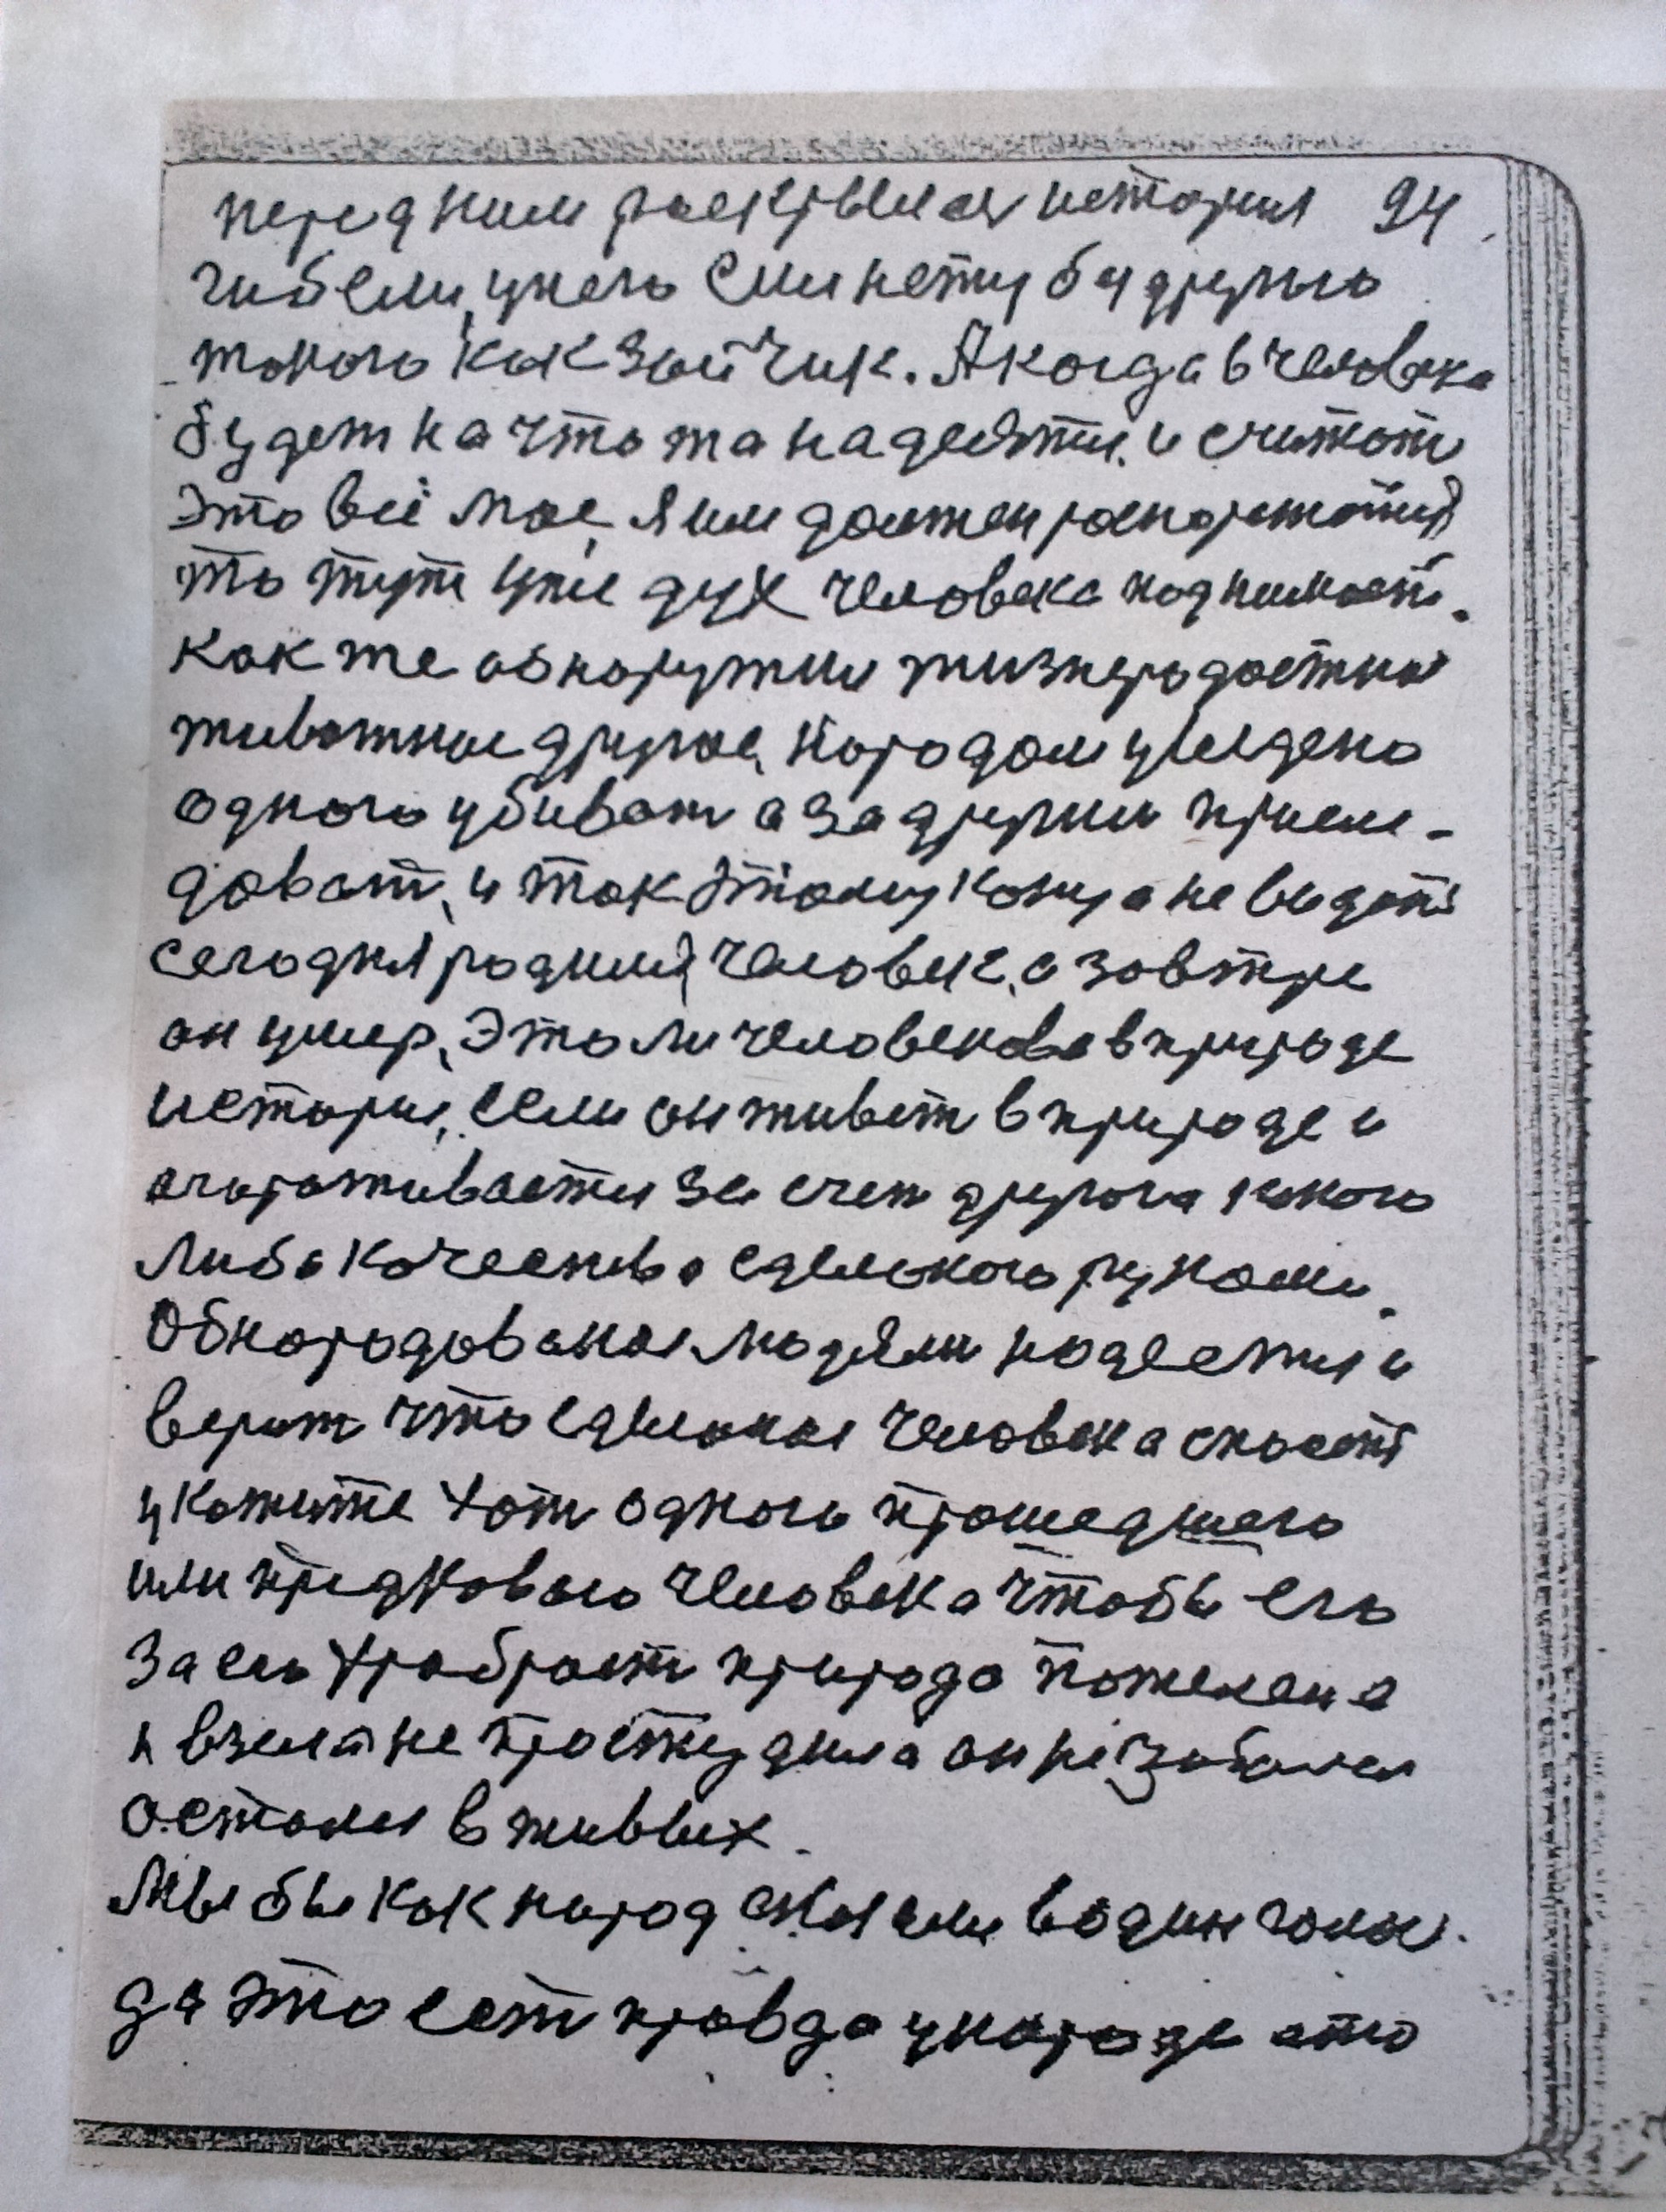 перед ним раскрылась история 94
гибели, у него если нету бы другого
такого как зайчик. А когда в человека
будет на что та надеятся. и считат
это всё мое, я им должен распоряжатся
то тут уже дух человека поднимает.
Как же обнаружил жизнерадостная
животное другое, Народом уведено
одного убиват а за другим пресле-
доват, и так этому конца не видать
сегодня родился человек, а завтре
он умер, Это ли человекова в природе
история, если он живет в природе и
огораживается за счет другога какого
либа качества сделаного руками.
Обнародованое людям надеется и
верит что сделаное человека спасет
укажите хот одного прошедшего
или предкового человека чтобы его
за его храброст природа пожелене
взела не простудила он не заболел
остался в живых.
Мы бы как народ сказали в один голос.
да это ест правда у народе это